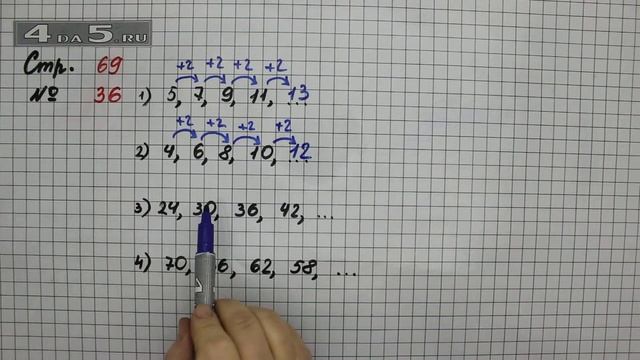 4DA5.RU
Стр. 69
№ 36
+2 +2 +2 +2
1) 5, 7, 9, 11, 13...
+2 +2 +2 +2
2) 4, 6, 8, 10, 12...
3) 24, 30, 36, 42, ...
4) 70, 6, 62, 58, ...